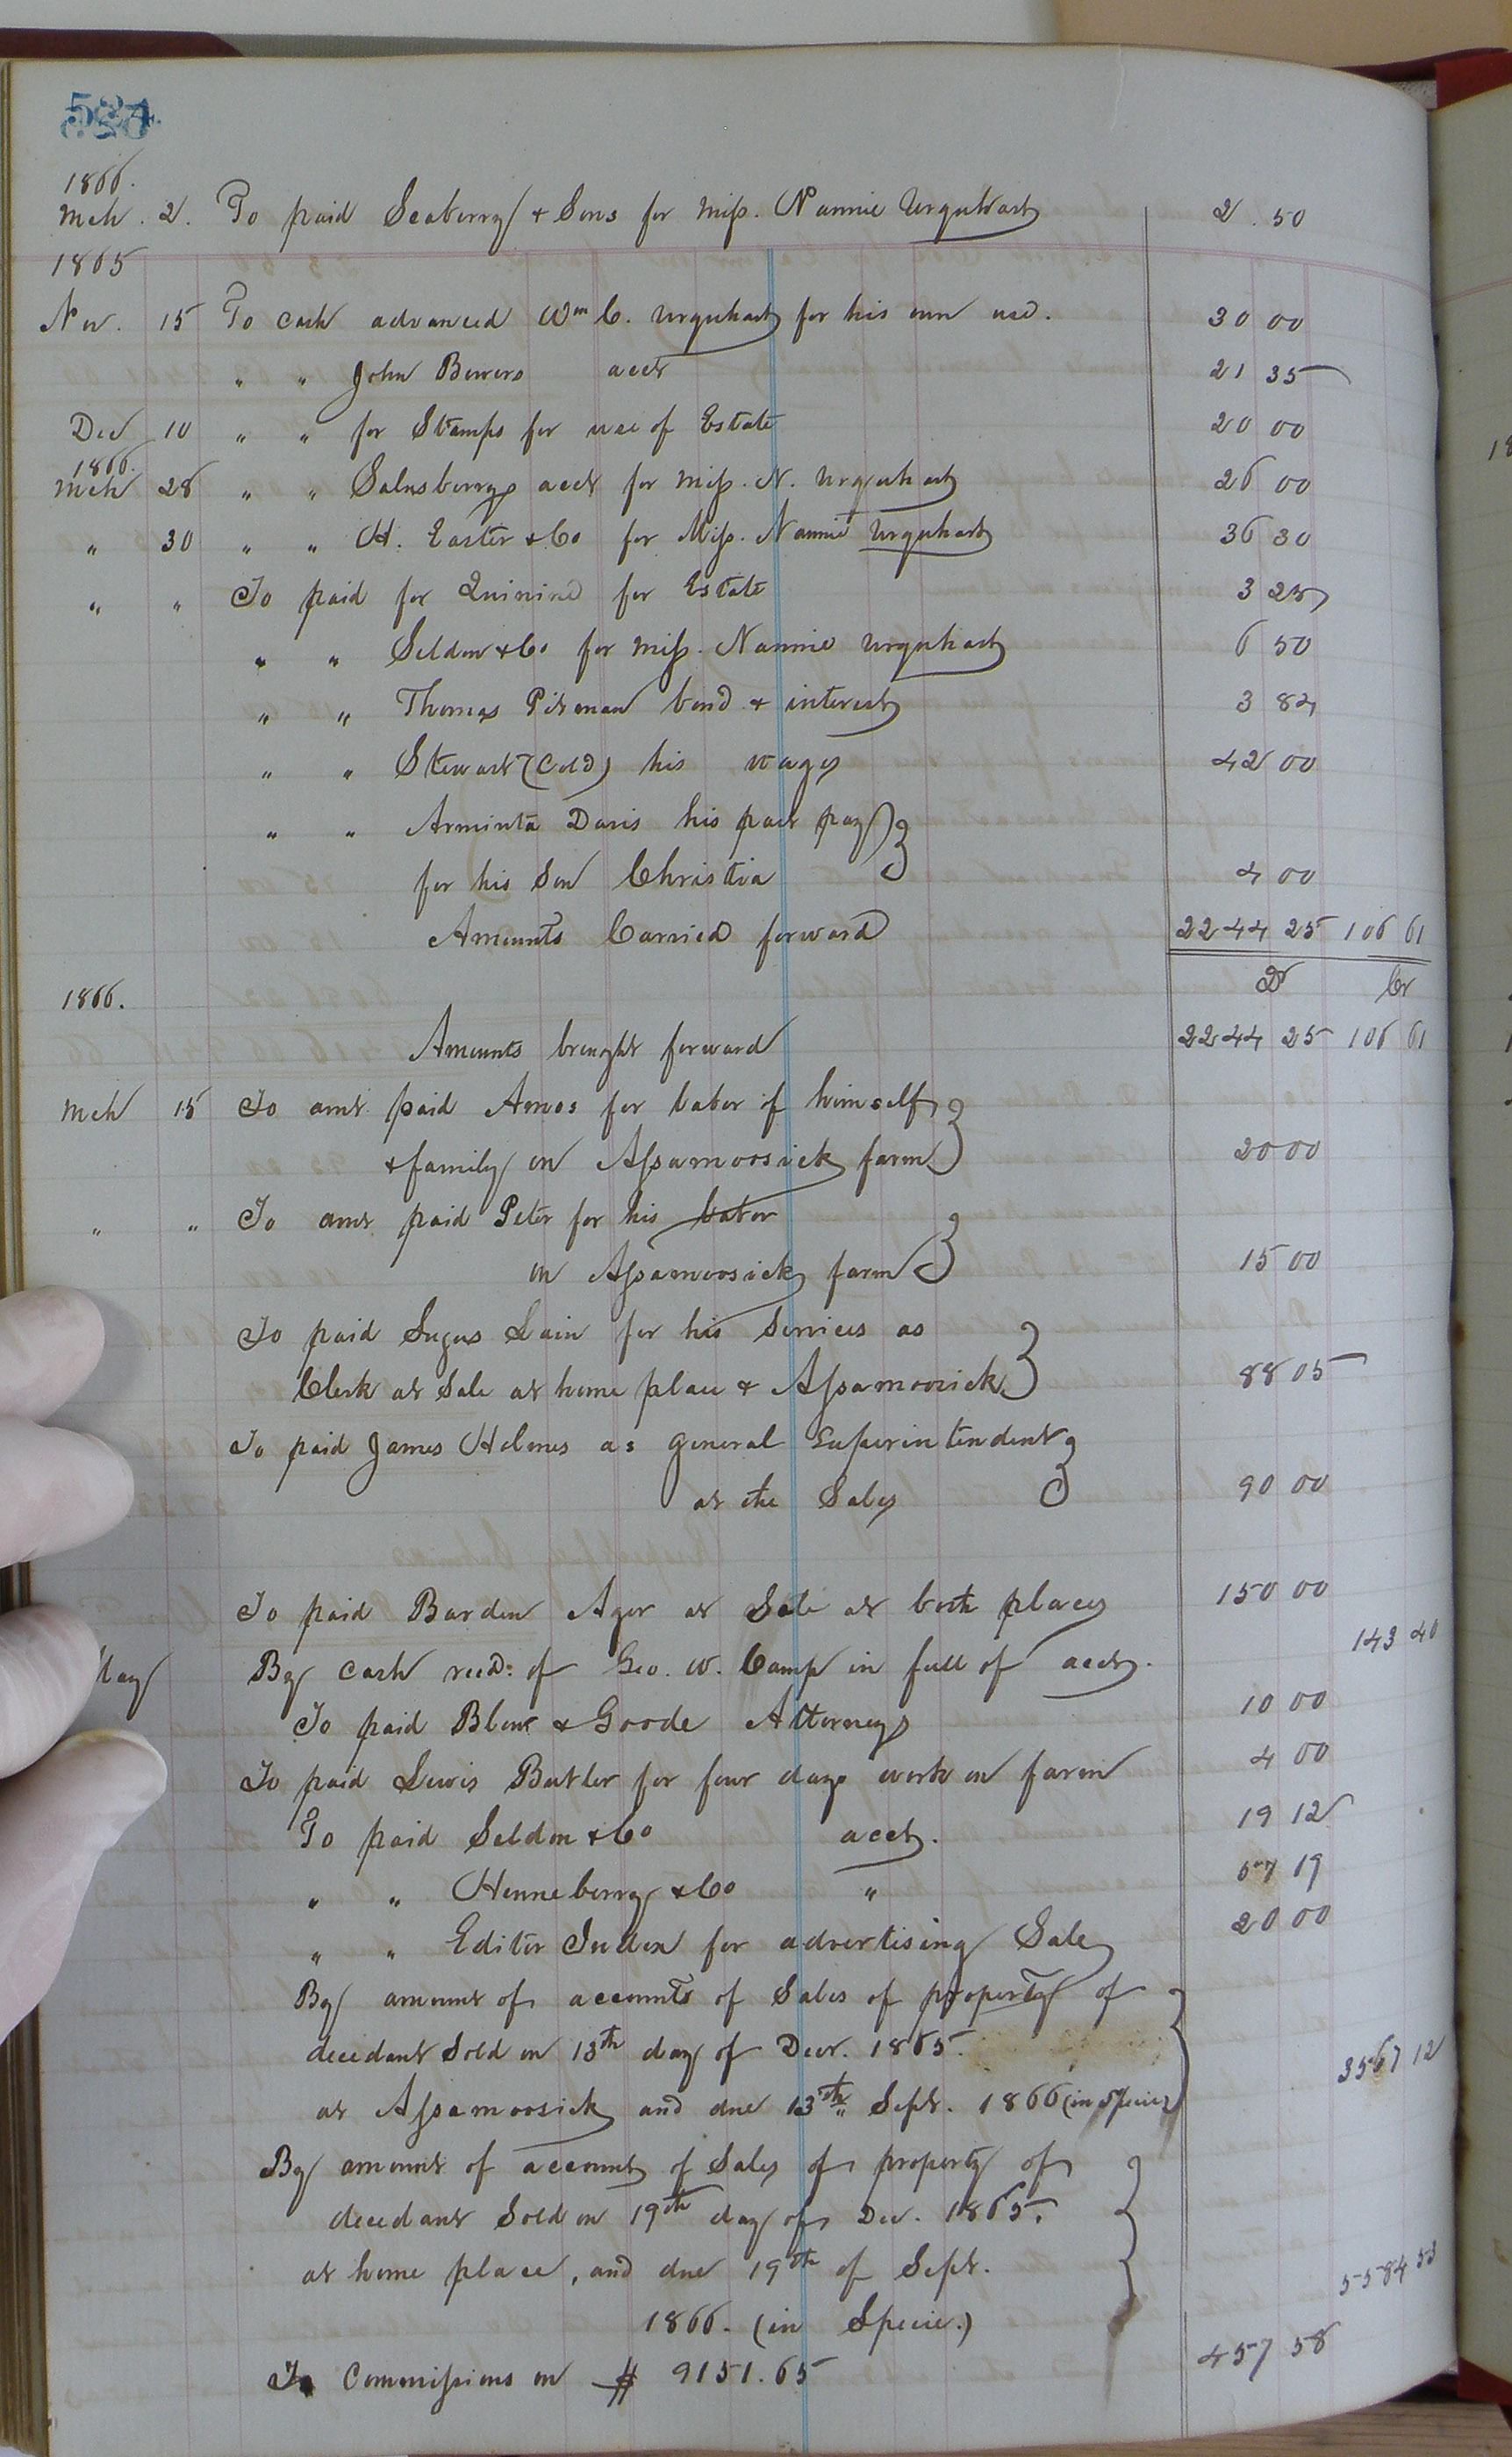 534
1866.
Mch. 2. To paid Seaberry & Sons for Miss. Nannie Urquhart 2.50
1865
Nov. 15 To cash advanced Wm C. Urquhart for his own use. 30 00
" " John Bowers acct 21 35
Dec 10 " " for Stamps for use of Estate 20 00
1866.
Mch 28 " " Salusberrys acct for Miss. N. Urquhart 26 00
" 30 " " H. Easter & Co for Miss. Nannie Urquhart 36 30
" " To paid for Quinine for Estate 3 25
" " Seldon & Co for Miss. Nannie Urquhart 6 50
" " Thomas Pitman bond & interest 3 84
" " Stewart (Cold) his wages 42 00
" " Arminta Davis his part pay
for his Son Christia 4 00
Amounts Carried forward 2244 25 106 61
Dr Cr
1866.
Amounts brought forward 2244 25 106 61
Mch 15 To amt paid Amos for labor of himself
& family on Assamoosick farm 20 00
" " To amt paid Peter for his labor
on Assamoosick farm 15 00
To paid Lain for his Services as
Clerk at Sale at home place & Assamoosick 88 05
To paid James Holmes as general Superintendent
at the Sales 90 00
To paid Barden Agor at Sale at both places 150 00
May By cash recd: of Geo. W. Camp in full of acct. 143 40
To paid Blow & Goode Attorneys 10 00
To paid Lewis Butler for four days work on farm 4 00
To paid Seldon & Co acct. 19 12
" " Henneberry & Co " 57 19
" " Editor Index for advertising Sale 20 00
By amount of accounts of Sales of property of
decedant Sold on 13th day of Decr. 1865.
at Assamoosick and due 13th Sept. 1866 (in Specie) 3567 12
By amount of account of Sales of property of
decedant Sold on 19th day of Dec. 1865.
at home place, and due 19th of Sept.
1866. (in Specie.) 5584 53
To Commissions on $ 9151.65 457 58